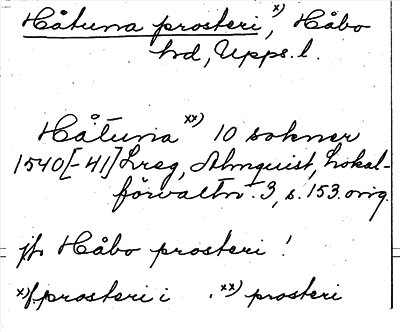 Håtuna prosteri x), Håbo
hd, Upps. l.
Håtuna xx) 10 sokner
1540[-41] Lreg, Almquist, Lokal-
förvaltn. 3, s. 153. orig.
jfr Håbo prosteri !
x) f. prosteri i . xx) prosteri